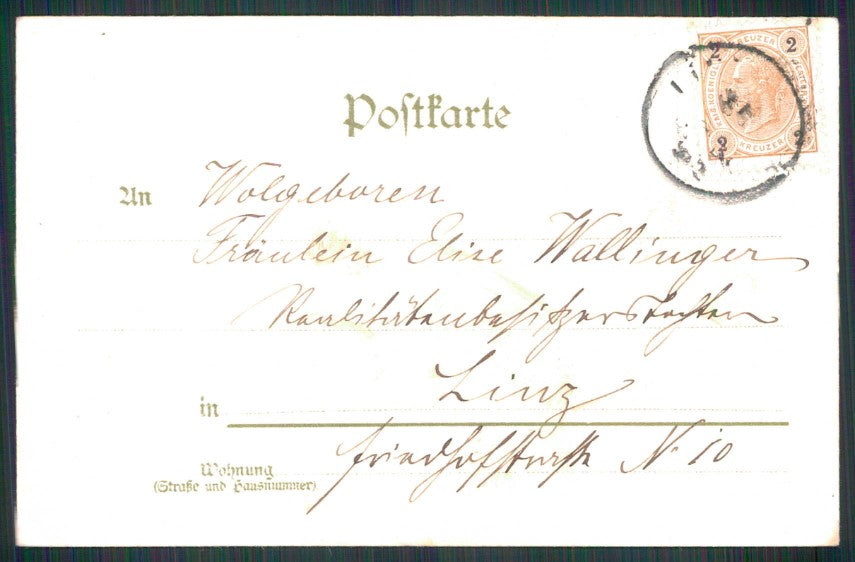 Postkarte
2 KREUZER 2
2 KREUZER 2
An Wolgeboren
Fräulein Elise Wallinger
Realitätenbesitzerstochter
in Linz
Wohnung
(Straße und Hausnummer)
Friedhofstraße N. 10